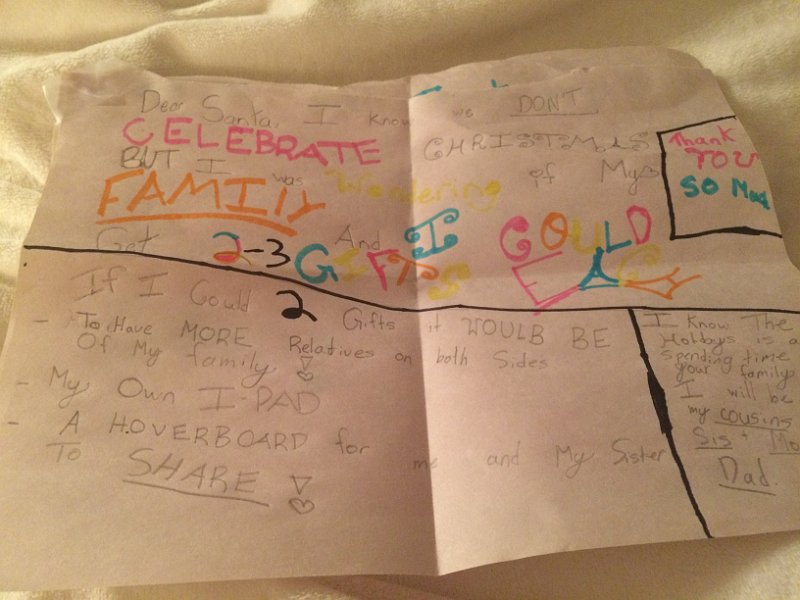 Dear Santa, I know we DON'T
CELEBRATE CHRISTMAS
BUT I was Wondering if My
FAMILY And I COULD
Get 2-3 GIFTS EACH
Thank
YOU
SO Much
If I Could 2 Gifts it WOULD BE
- To Have MORE Relatives on both Sides
Of My family
- My Own I-PAD
- A HOVERBOARD for me and My Sister
To SHARE
I Know The
Holdays is a
spending time
your family
I will be
my cousins
Sis +
Dad.